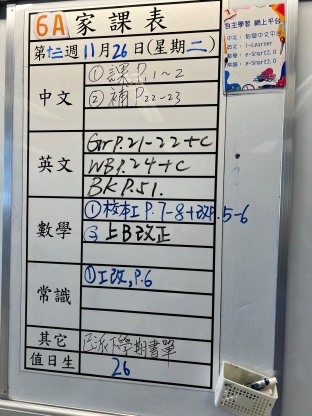 6A 家課表
第十三週 11月26日(星期二)
中文
①課P.1~2
②補P.22-23
英文
Gr P.21-22+c
WB P.24+c
BK P.51.
數學
①校本工P.7-8+改P.5-6
③上B改正
常識
①工改,P.6
其它
已派下學期書單
值日生
26
自主學習 網上平台
中文:
英文:i-Learner
數學:e-Start2.0
常識:e-Start2.0